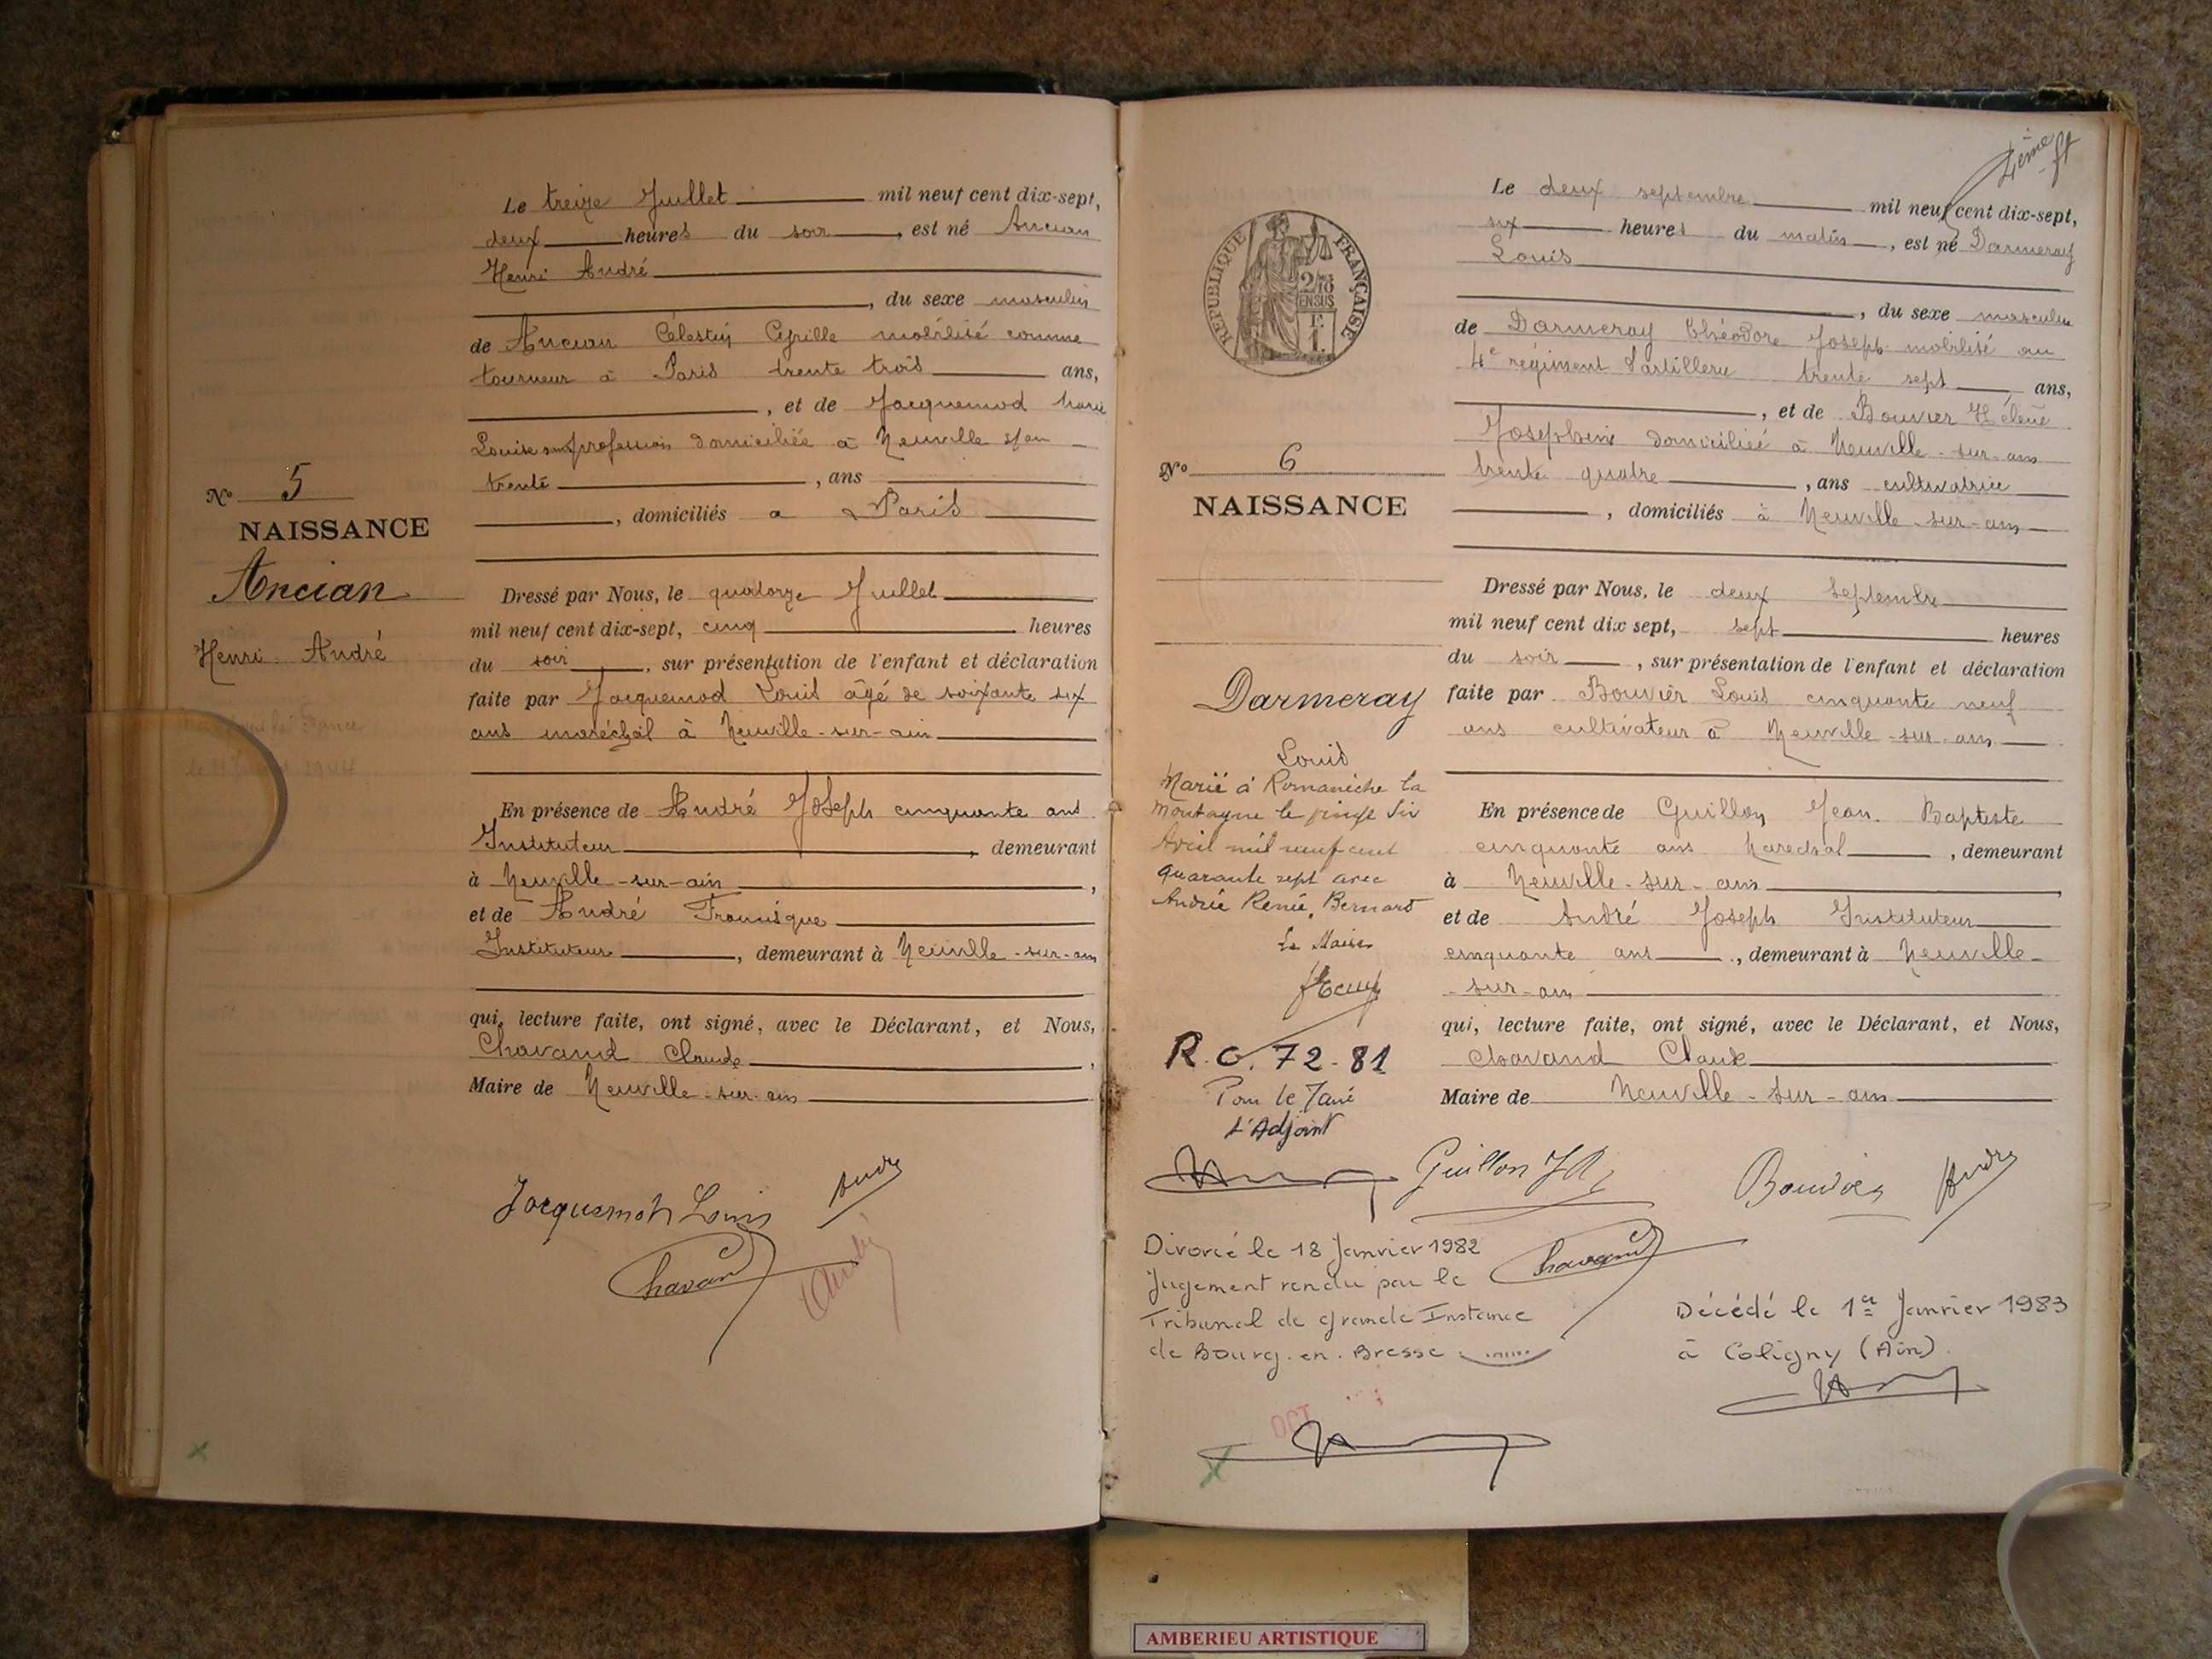 Le treize Juillet mil neuf cent dix-sept,
deux heures du soir, est né Ancian
Henri André
, du sexe masculin
de Ancian Célestin Cyrille mobilisé comme
tourneur à Paris trente trois ans,
, et de Jacquemod Marie
Louise sans profession domiciliée à Neuville s/ain
trente, ans
, domiciliés à Paris
Nº 5
NAISSANCE
Ancian
Henri André
Dressé par Nous, le quatorze Juillet
mil neuf cent dix-sept, cinq heures
du soir, sur présentation de l'enfant et déclaration
faite par Jacquemod Louis âgé de soixante six
ans maréchal à Neuville-sur-ain
En présence de André Joseph cinquante ans
Instituteur, demeurant
à Neuville-sur-ain,
et de André Francisque
Instituteur, demeurant à Neuville-sur-ain
qui, lecture faite, ont signé, avec le Déclarant, et Nous,
Chavand Claude,
Maire de Neuville-sur-ain
Jacquemoh Louis André
Chavand
4ème ft
Le deux septembre mil neuf cent dix-sept,
six heures du matin, est né Darmeray
Louis
, du sexe masculin
de Darmeray Théodore Joseph mobilisé au
4e régiment d'artillerie trente sept ans,
, et de Bouvier Hélène
Josephine domiciliée à Neuville-sur-ain
trente quatre, ans cultivatrice
, domiciliés à Neuville-sur-ain
RÉPUBLIQUE FRANÇAISE
2/10
EN SUS
Nº 6
NAISSANCE
Darmeray
Louis
Marié à Romanèche la
Montagne le
Avril mil neuf cent
quarante sept avec
Andrée Renée, Bernard
Le Maire
R.C. 72-81
Pour le
L'Adjoint
Dressé par Nous, le deux Septembre
mil neuf cent dix sept, sept heures
du soir, sur présentation de l'enfant et déclaration
faite par Bouvier Louis cinquante neuf
ans cultivateur à Neuville-sur-ain
En présence de Guillon Jean Baptiste
cinquante ans Marechal, demeurant
à Neuville-sur-ain,
et de André Joseph Instituteur
cinquante ans, demeurant à Neuville-
-sur-ain
qui, lecture faite, ont signé, avec le Déclarant, et Nous,
Chavand Claude
Maire de Neuville-sur-ain
Guillon Bouvier André
Chavand
Divorcé le 18 Janvier 1982
Jugement rendu par le
Tribunal de grande Instance
de Bourg.en.Bresse
Décédé le 1er Janvier 1983
à Coligny (Ain).
OCT
AMBERIEU ARTISTIQUE